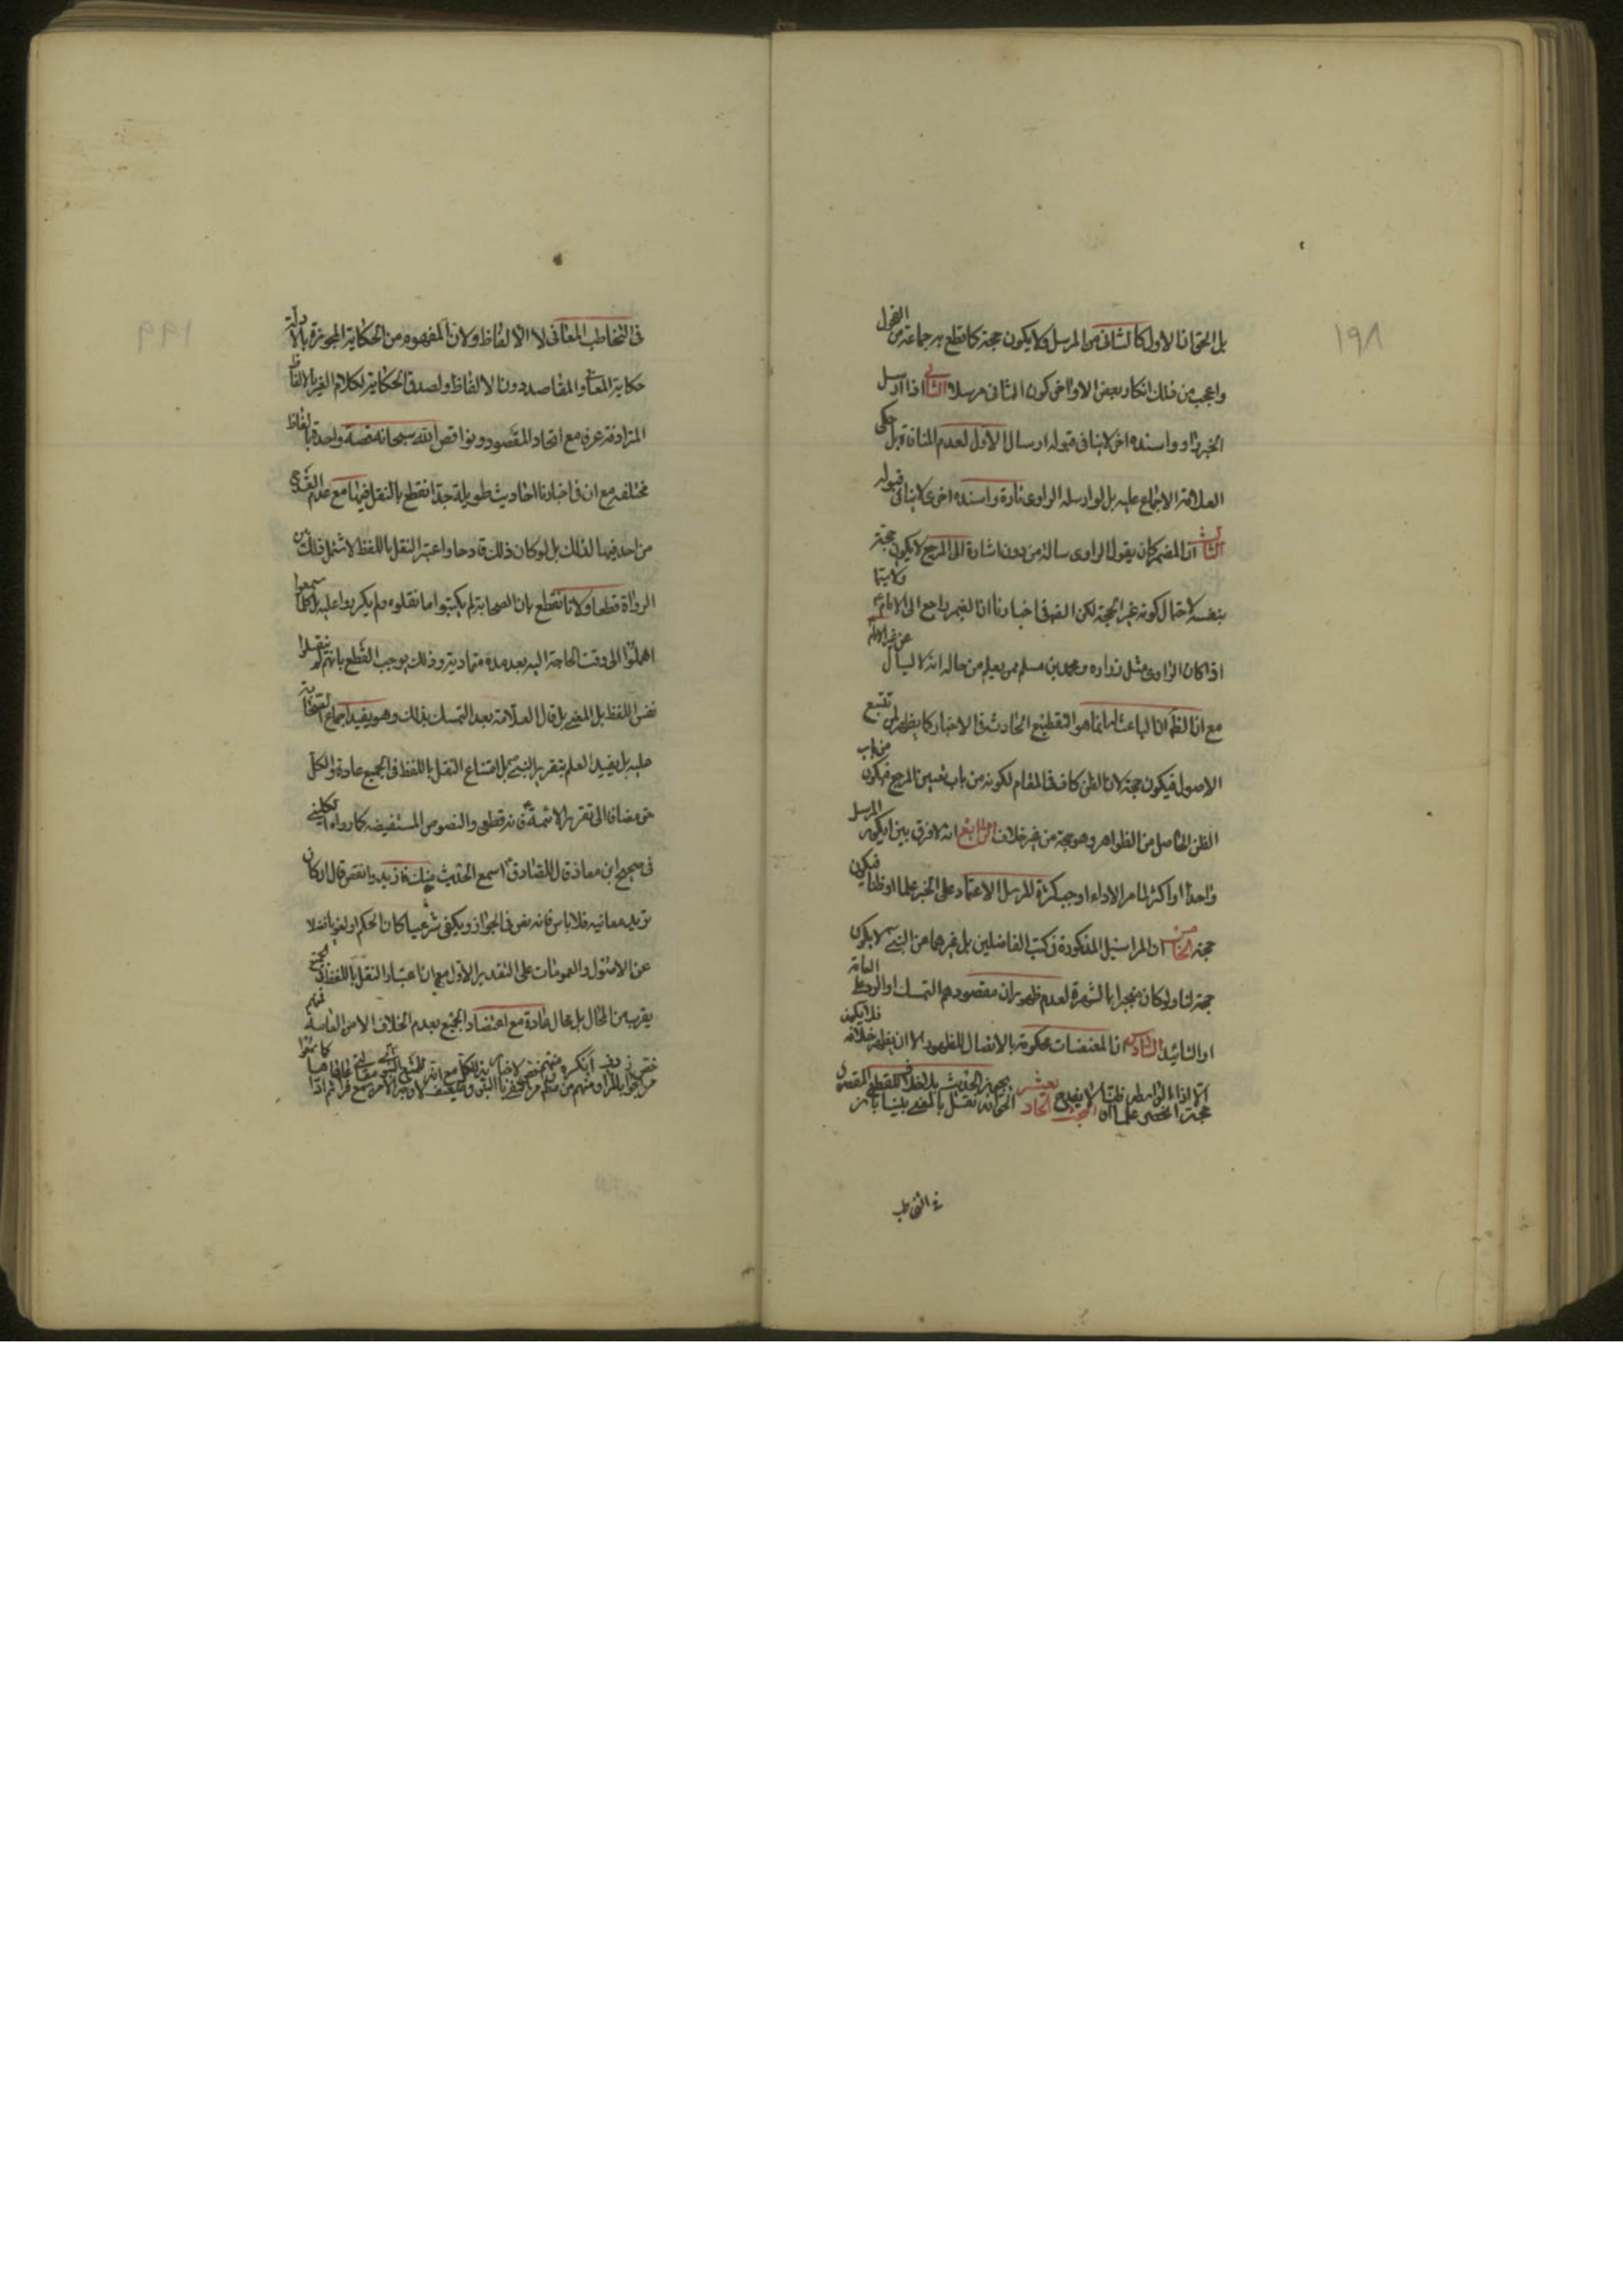 ١٩٨
بل الحق ان الاول كالثانى من المرسل ولا يكون حجة كما قطع به جماعة من الفحول
واعجب من ذلك انكار بعض الاواخر كون الثانى مرسلا الثانى اذا ارسل
الخبر راو واسنده اخر لا ينافى قبوله ارسال الاول لعدم المنافاة بل حكى
العلامة الاجماع عليه بل لو ارسله الراوى تارة واسنده اخرى لا ينافى قبوله
الثالث ان المضمر كان يقول الراوى سالته من دون اشارة الى المرجع لا يكون حجة
بنفسه لاحتمال كونه غير الحجة لكن الظ فى اخبارنا ان الضمير راجع الى الامام ولا سيما
اذا كان الراوى مثل زراره ومحمد بن مسلم ممن يعلم من حاله انه لا يسأل عن غير الامام
مع ان الظ ان الباعث انما هو التقطيع الحادث فى الاخبار كما يظهر لمن تتبع
الاصول فيكون حجة لان الظن كاف فى المقام لكونه من باب تعيين المرجع فيكون من باب
الظن الحاصل من الظواهر وهو حجة من غير خلاف الرابع انه لا فرق بين ان يكون المرسل
واحدا او اكثر لما مر الا اذا اوجب كثرة المرسل الاعتماد على الخبر علما او ظنا فيكون
حجة الخامس ان المراسيل المذكورة فى كتب الفاضلين بل غيرهما عن النبى لا يكون
حجة لنا ولو كان منجبرا بالشهرة لعدم ظهور ان مقصودهم التمسك او الرد على العامة
او التائيد السادس ان المعنعنات محكومة بالاتصال للظهور الا ان يظهر خلافه فلا يكون
حجة
فى التخاطب
١٩٩
فى التخاطب المعانى لا الالفاظ ولان المفهوم من الحكاية المجوزة بالادلة
حكاية المعانى والمقاصد دون الالفاظ ولصدق الحكاية لكلام الغير بالالفاظ
المترادفة عرفا مع اتحاد المقصود وبذا قص الله سبحانه قصة واحدة بالفاظ
مختلفه مع ان فى اخبارنا احاديث طويلة جدا نقطع بالنقل فيها مع عدم القدح
من احد فيها لذلك بل لو كان ذلك قادحا واعتبر النقل باللفظ لاشتهر ذلك بين
الرواة قطعا ولانا نقطع بان الصحابة لم يكتبوا ما نقلوه ولم يكرروا عليه بل كلما سمعوا
اهملوا الى وقت الحاجة اليه بعد مدة متمادية وذلك يوجب القطع بانهم لم ينقلوا
نفس اللفظ بل المعنى بل قال العلامة بعد التمسك بذلك وهو يفيد اجماع الصحابة
عليه بل يفيد العلم بتقرير النبى بل امتناع النقل باللفظ فى الجميع عادة والكل
حق مضافا الى تقرير الائمة فانه قطعى والنصوص المستفيضه كما رواه الكلينى
فى صحيح ابن معاذ قال للصادق اسمع الحديث منك فازيد وانقص قال ان كان
تريد معانيه فلا باس فانه نص فى الجواز ويكفى شرعيا كان الحكم او لغويا فضلا
عن الاصول والعمومات على التقدير الاول مع ان اعتبار النقل باللفظ
يقرب من المحال بل محال عادة مع اعتضاد الجميع بعدم الخلاف الا من العامة